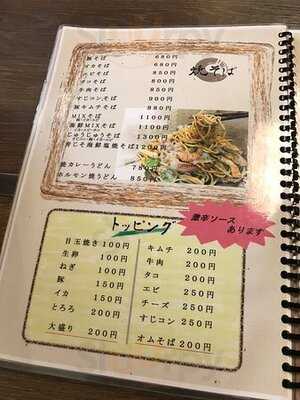 焼そば
豚そば 680円
イカそば 680円
エビそば 850円
タコそば 800円
牛肉そば 850円
すじコンそば 900円
豚キムチそば 880円
MIXそば 1100円
海鮮MIXそば 1100円
じゅうじゅうそば 1300円
青じそ海鮮塩焼そば1200円
焼カレーうどん 780円
ホルモン焼うどん 850円
トッピング
激辛ソース
あります
目玉焼き 100円
生卵 100円
ねぎ 100円
豚 150円
イカ 150円
とろろ 200円
大盛り 200円
キムチ 200円
牛肉 200円
タコ 200円
エビ 250円
チーズ 250円
すじコン 250円
オムそば 200円